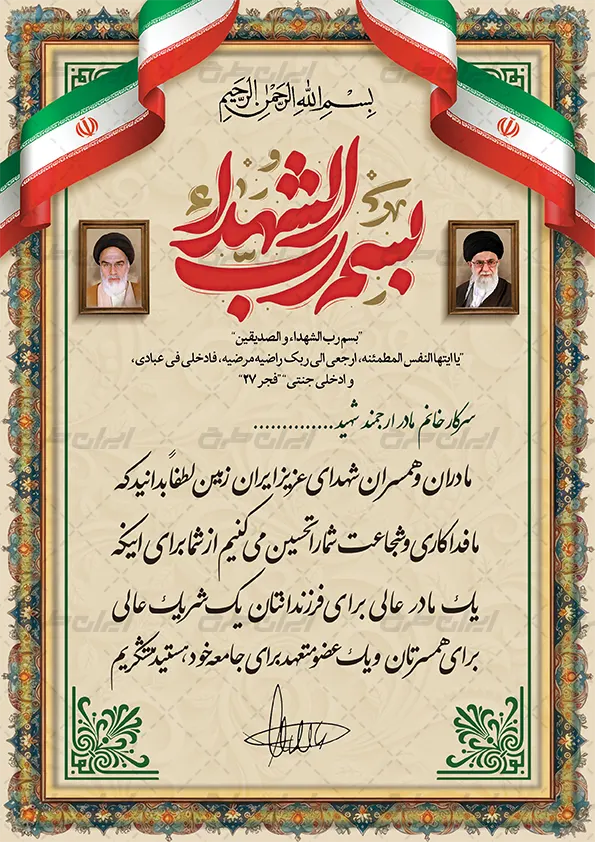 بسم الله الرحمن الرحیم
بسم رب الشهداء
"بسم رب الشهداء و الصدیقین"
"یا ایتها النفس المطمئنه، ارجعی الی ربک راضیه مرضیه، فادخلی فی عبادی،
و ادخلی جنتی" "فجر ۲۷"
سرکار خانم مادر ارجمند شهید..............
مادران و همسران شهدای عزیز ایران زمین لطفاً بدانید که
ما فداکاری و شجاعت شما را تحسین می کنیم از شما برای اینکه
یک مادر عالی برای فرزندانتان یک شریک عالی
برای همسرتان و یک عضو متعهد برای جامعه خود هستید متشکریم
ایران طرح